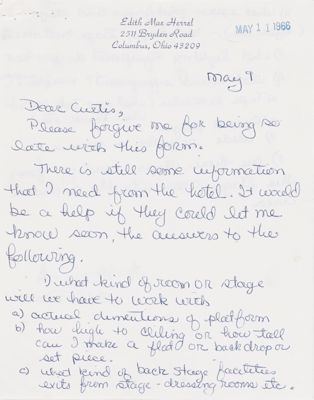 Edith Mae Herrel
2511 Bryden Road
Columbus, Ohio 43209
MAY 11 1966
May 9
Dear Curtis,
Please forgive me for being so
late with this form.
There is still some information
that I need from the hotel. It would
be a help if they could let me
know soon, the answers to the
following.
1) what kind of room or stage
will we have to work with
a) actual dimentions of platform
b) how high to ceiling or how tall
can I make a flat or backdrop or
set piece.
c) what kind of back stage facilities
exits from stage - dressing rooms etc.